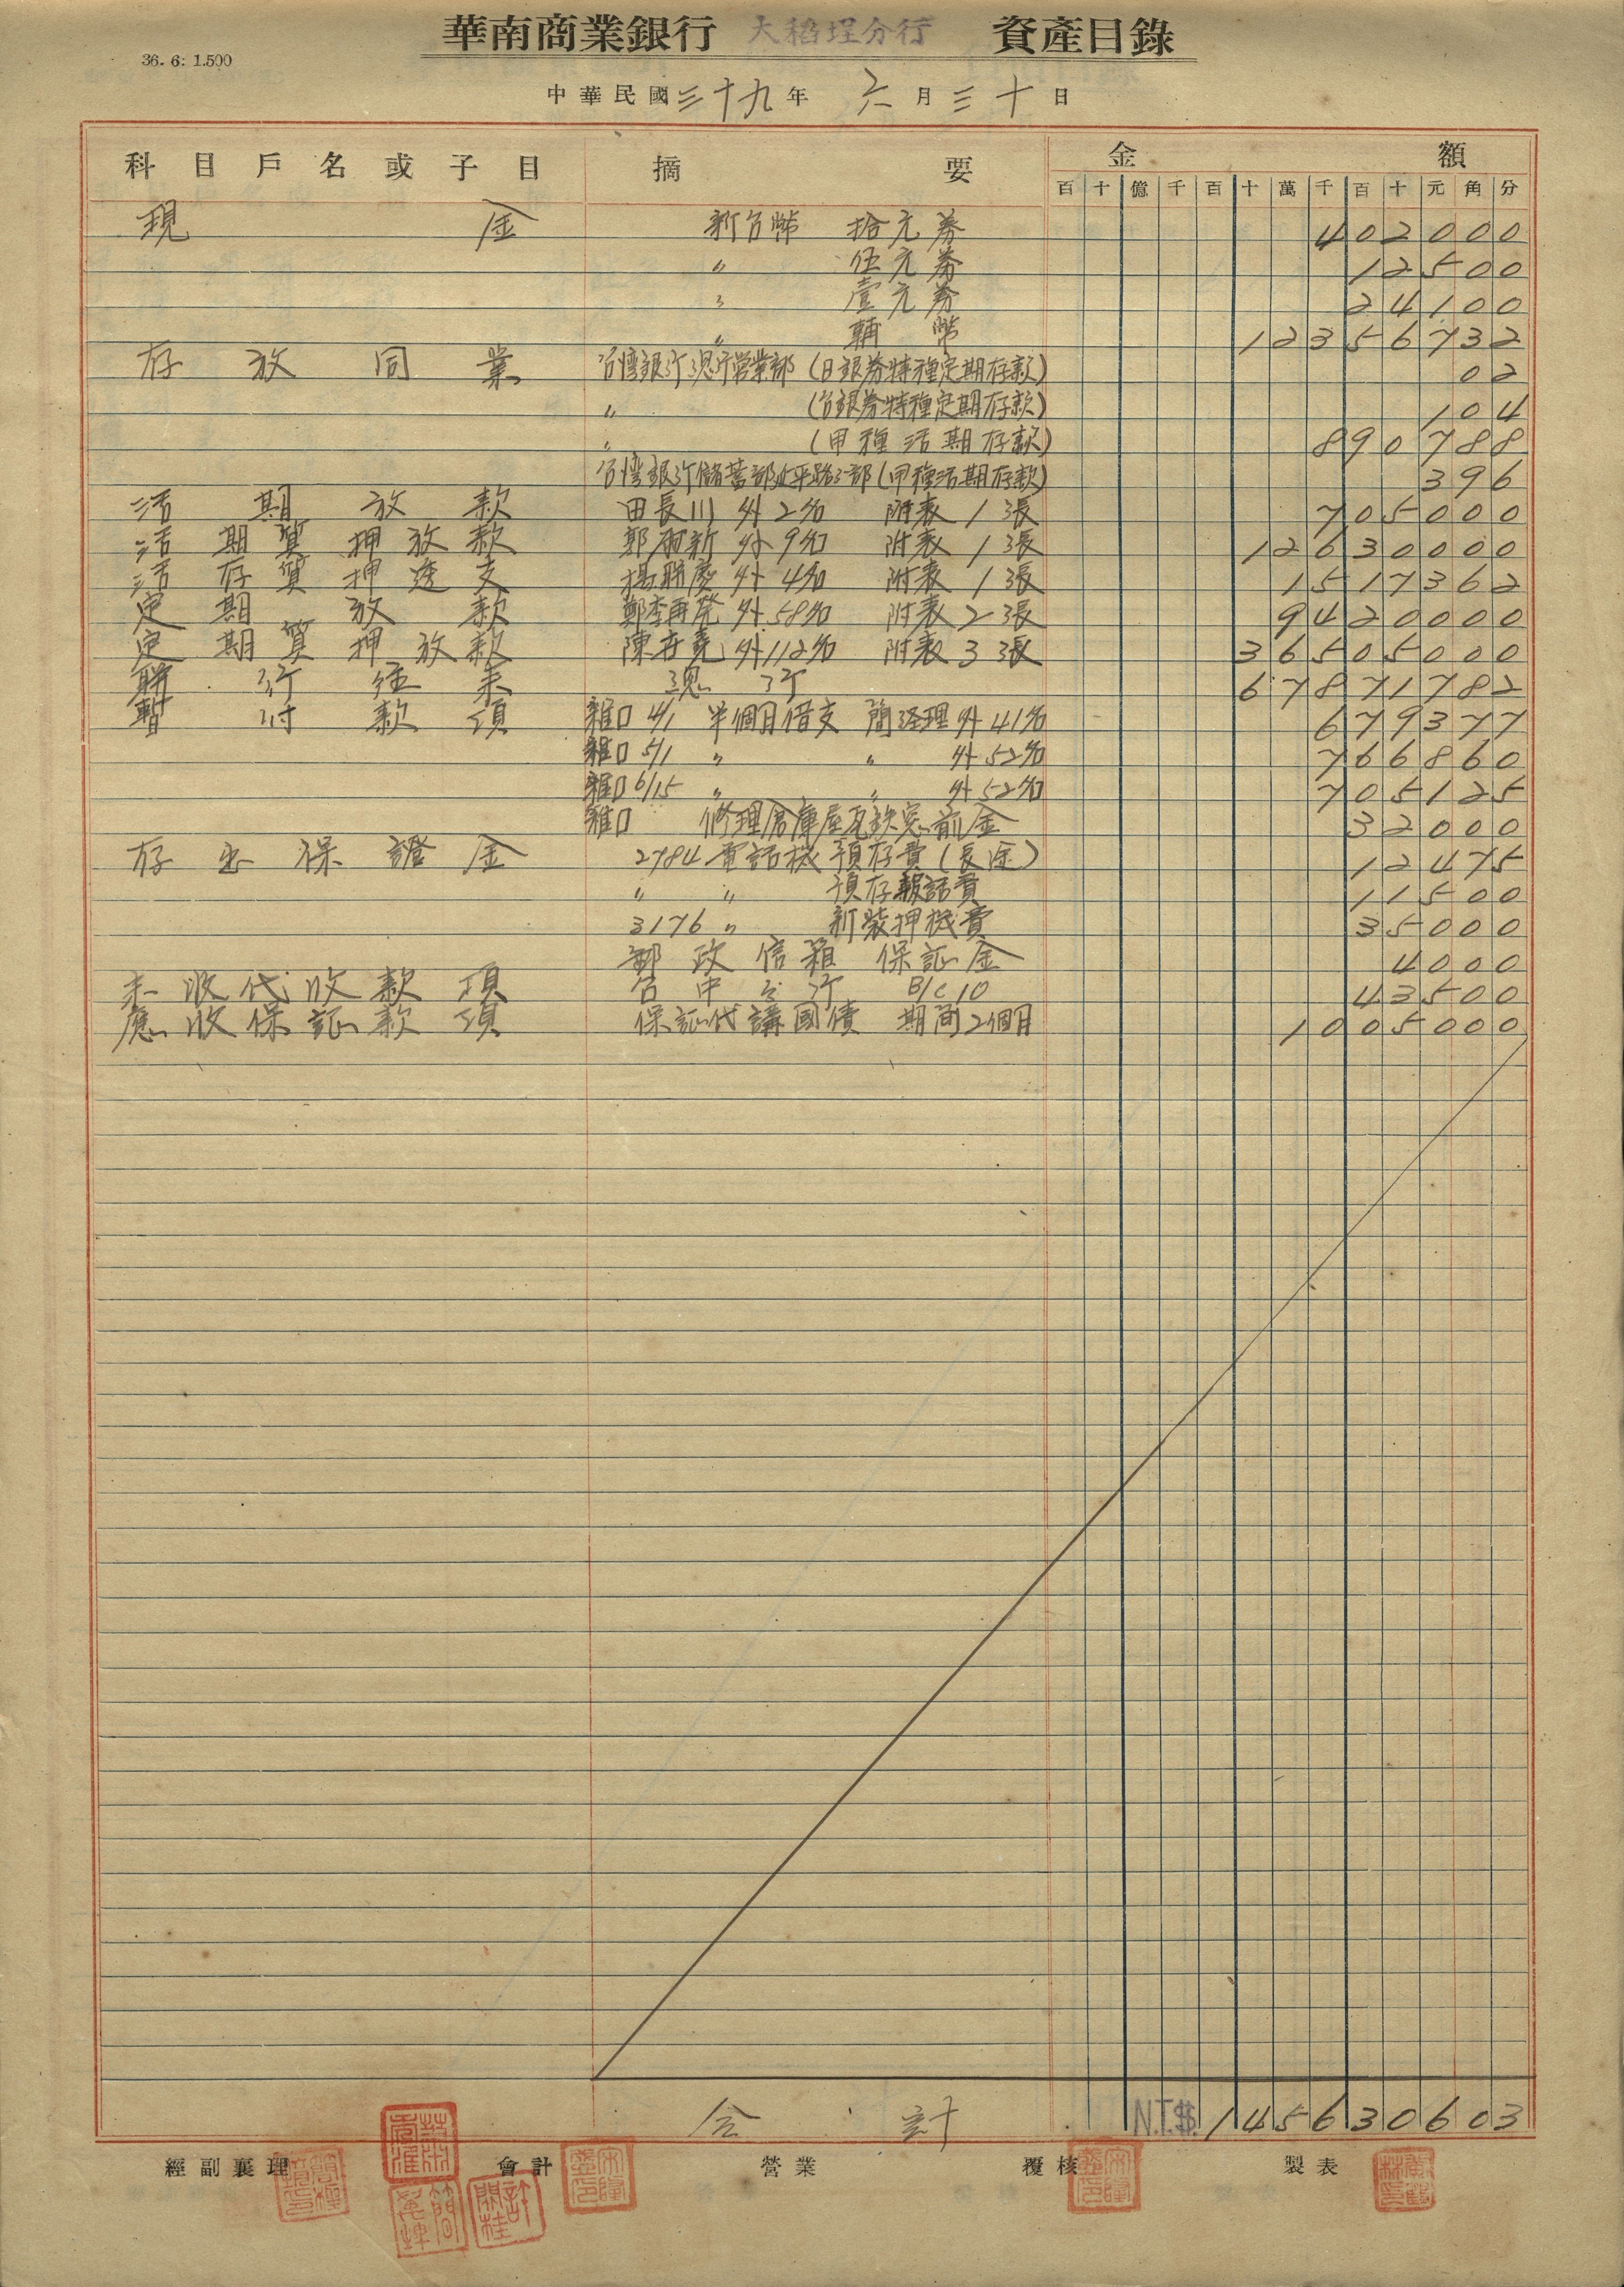 華南商業銀行 大稻埕分行 資產目錄
36. 6: 1.500
中華民國三十九年 六月三十日
科目戶名或子目 摘要 金額
百十億千百十萬千百十元角分
現金 新台幣 拾元券 402000
〃 伍元券 12500
〃 壹元券 24100
〃 輔幣 12356732
存放同業 台灣銀行總行營業部 (日銀券特種定期存款) 02
〃 (台銀券特種定期存款) 104
〃 (甲種活期存款) 890788
台灣銀行儲蓄部延平路分部 (甲種活期存款) 396
活期放款 田長川 外2名 附表1張 705000
活期質押放款 郭雨新 外9名 附表1張 12630000
活存質押透支 楊聯慶 外4名 附表1張 1517362
定期放款 鄭李再發 外58名 附表2張 9420000
定期質押放款 陳存 外112名 附表3張 36505000
聯行往來 總行 67871782
暫付款項 雜口 4/1 半個月借支 簡經理 外41名 679377
雜口 5/1 〃 〃 外52名 766860
雜口 6/15 〃 〃 外52名 705125
雜口 修理倉庫屋瓦鉄窓前金 32000
存出保證金 2784 電話機 預存費 (長途) 12475
〃 〃 預存報話費 11500
3176 〃 新裝押機費 35000
郵政信箱 保証金 4000
未收代收款項 台中分行 B/C 10 43500
應收保証款項 保証代購國債 期間2個月 1005000
合計 N.T.$. 145630603
經副襄理 會計 營業 覆核 製表